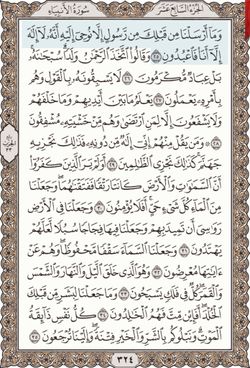 الجزء السابع عشر
سورة الأنبياء
وَمَآ أَرْسَلْنَا مِن قَبْلِكَ مِن رَّسُولٍ إِلَّا نُوحِىٓ إِلَيْهِ أَنَّهُۥ لَآ إِلَٰهَ
إِلَّآ أَنَا۠ فَٱعْبُدُونِ ٢٥ وَقَالُوا۟ ٱتَّخَذَ ٱلرَّحْمَٰنُ وَلَدًا ۗ سُبْحَٰنَهُۥ ۚ
بَلْ عِبَادٌ مُّكْرَمُونَ ٢٦ لَا يَسْبِقُونَهُۥ بِٱلْقَوْلِ وَهُم
بِأَمْرِهِۦ يَعْمَلُونَ ٢٧ يَعْلَمُ مَا بَيْنَ أَيْدِيهِمْ وَمَا خَلْفَهُمْ
وَلَا يَشْفَعُونَ إِلَّا لِمَنِ ٱرْتَضَىٰ وَهُم مِّنْ خَشْيَتِهِۦ مُشْفِقُونَ
٢٨ ۞ وَمَن يَقُلْ مِنْهُمْ إِنِّىٓ إِلَٰهٌ مِّن دُونِهِۦ فَذَٰلِكَ نَجْزِيهِ
جَهَنَّمَ ۚ كَذَٰلِكَ نَجْزِى ٱلظَّٰلِمِينَ ٢٩ أَوَلَمْ يَرَ ٱلَّذِينَ كَفَرُوٓا۟
أَنَّ ٱلسَّمَٰوَٰتِ وَٱلْأَرْضَ كَانَتَا رَتْقًا فَفَتَقْنَٰهُمَا ۖ وَجَعَلْنَا
مِنَ ٱلْمَآءِ كُلَّ شَىْءٍ حَىٍّ ۖ أَفَلَا يُؤْمِنُونَ ٣٠ وَجَعَلْنَا فِى ٱلْأَرْضِ
رَوَٰسِىَ أَن تَمِيدَ بِهِمْ وَجَعَلْنَا فِيهَا فِجَاجًا سُبُلًا لَّعَلَّهُمْ
يَهْتَدُونَ ٣١ وَجَعَلْنَا ٱلسَّمَآءَ سَقْفًا مَّحْفُوظًا ۖ وَهُمْ عَنْ
ءَايَٰتِهَا مُعْرِضُونَ ٣٢ وَهُوَ ٱلَّذِى خَلَقَ ٱلَّيْلَ وَٱلنَّهَارَ وَٱلشَّمْسَ
وَٱلْقَمَرَ ۖ كُلٌّ فِى فَلَكٍ يَسْبَحُونَ ٣٣ وَمَا جَعَلْنَا لِبَشَرٍ مِّن قَبْلِكَ
ٱلْخُلْدَ ۖ أَفَإِي۟ن مِّتَّ فَهُمُ ٱلْخَٰلِدُونَ ٣٤ كُلُّ نَفْسٍ ذَآئِقَةُ
ٱلْمَوْتِ ۗ وَنَبْلُوكُم بِٱلشَّرِّ وَٱلْخَيْرِ فِتْنَةً ۖ وَإِلَيْنَا تُرْجَعُونَ ٣٥
٣٢٤